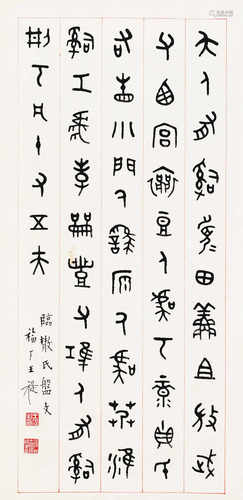 夨人有嗣眉田鮮且微武
父西宮襄豆人虞丂彔貞師氏
右眚小門人繇原人虞艿淮
嗣工虎孝龠豐父唯人有嗣
荊丂凡十又五夫
臨散氏盤文
福厂王禔